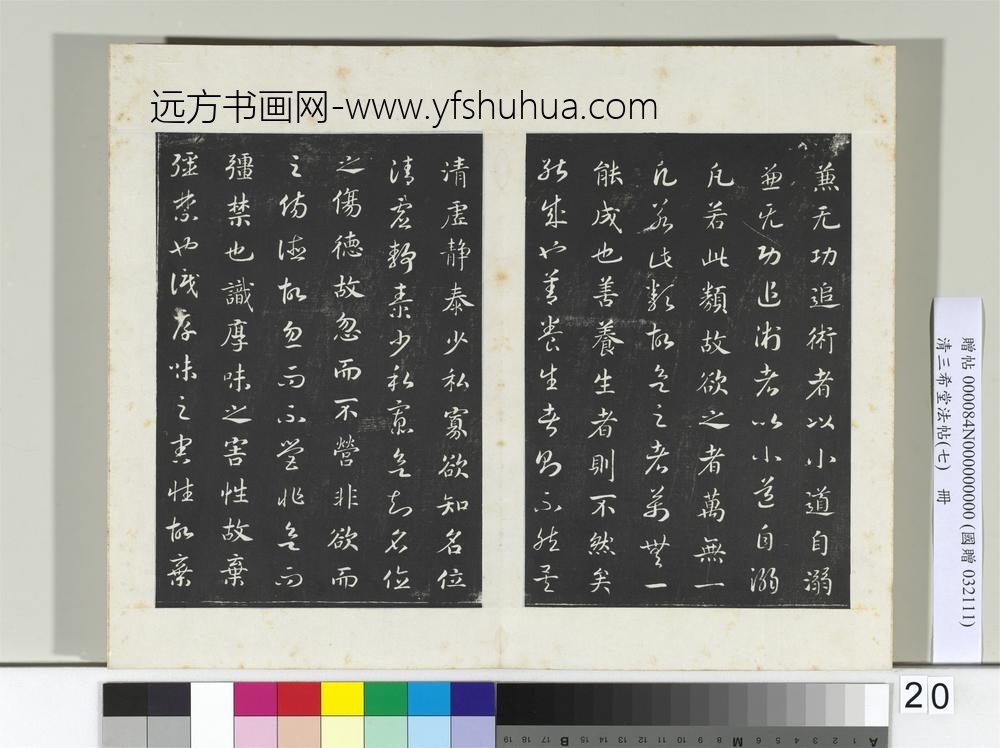 远方书画网-www.yfshuhua.com
蕉无功追術者以小道自溺
蕉无功追術者以小道自溺
凡若此類故欲之者萬無一
凡若此類故欲之者萬無一
能成也善養生者則不然矣
能成也善養生者則不然矣
清虛静泰少私寡欲知名位
清虛静泰少私寡欲知名位
之傷德故忽而不營非欲而
之傷德故忽而不營非欲而
彊禁也識厚味之害性故棄
彊禁也識厚味之害性故棄
贈帖 000084N000000000 (國贈 032111)
清三希堂法帖(七) 冊
20